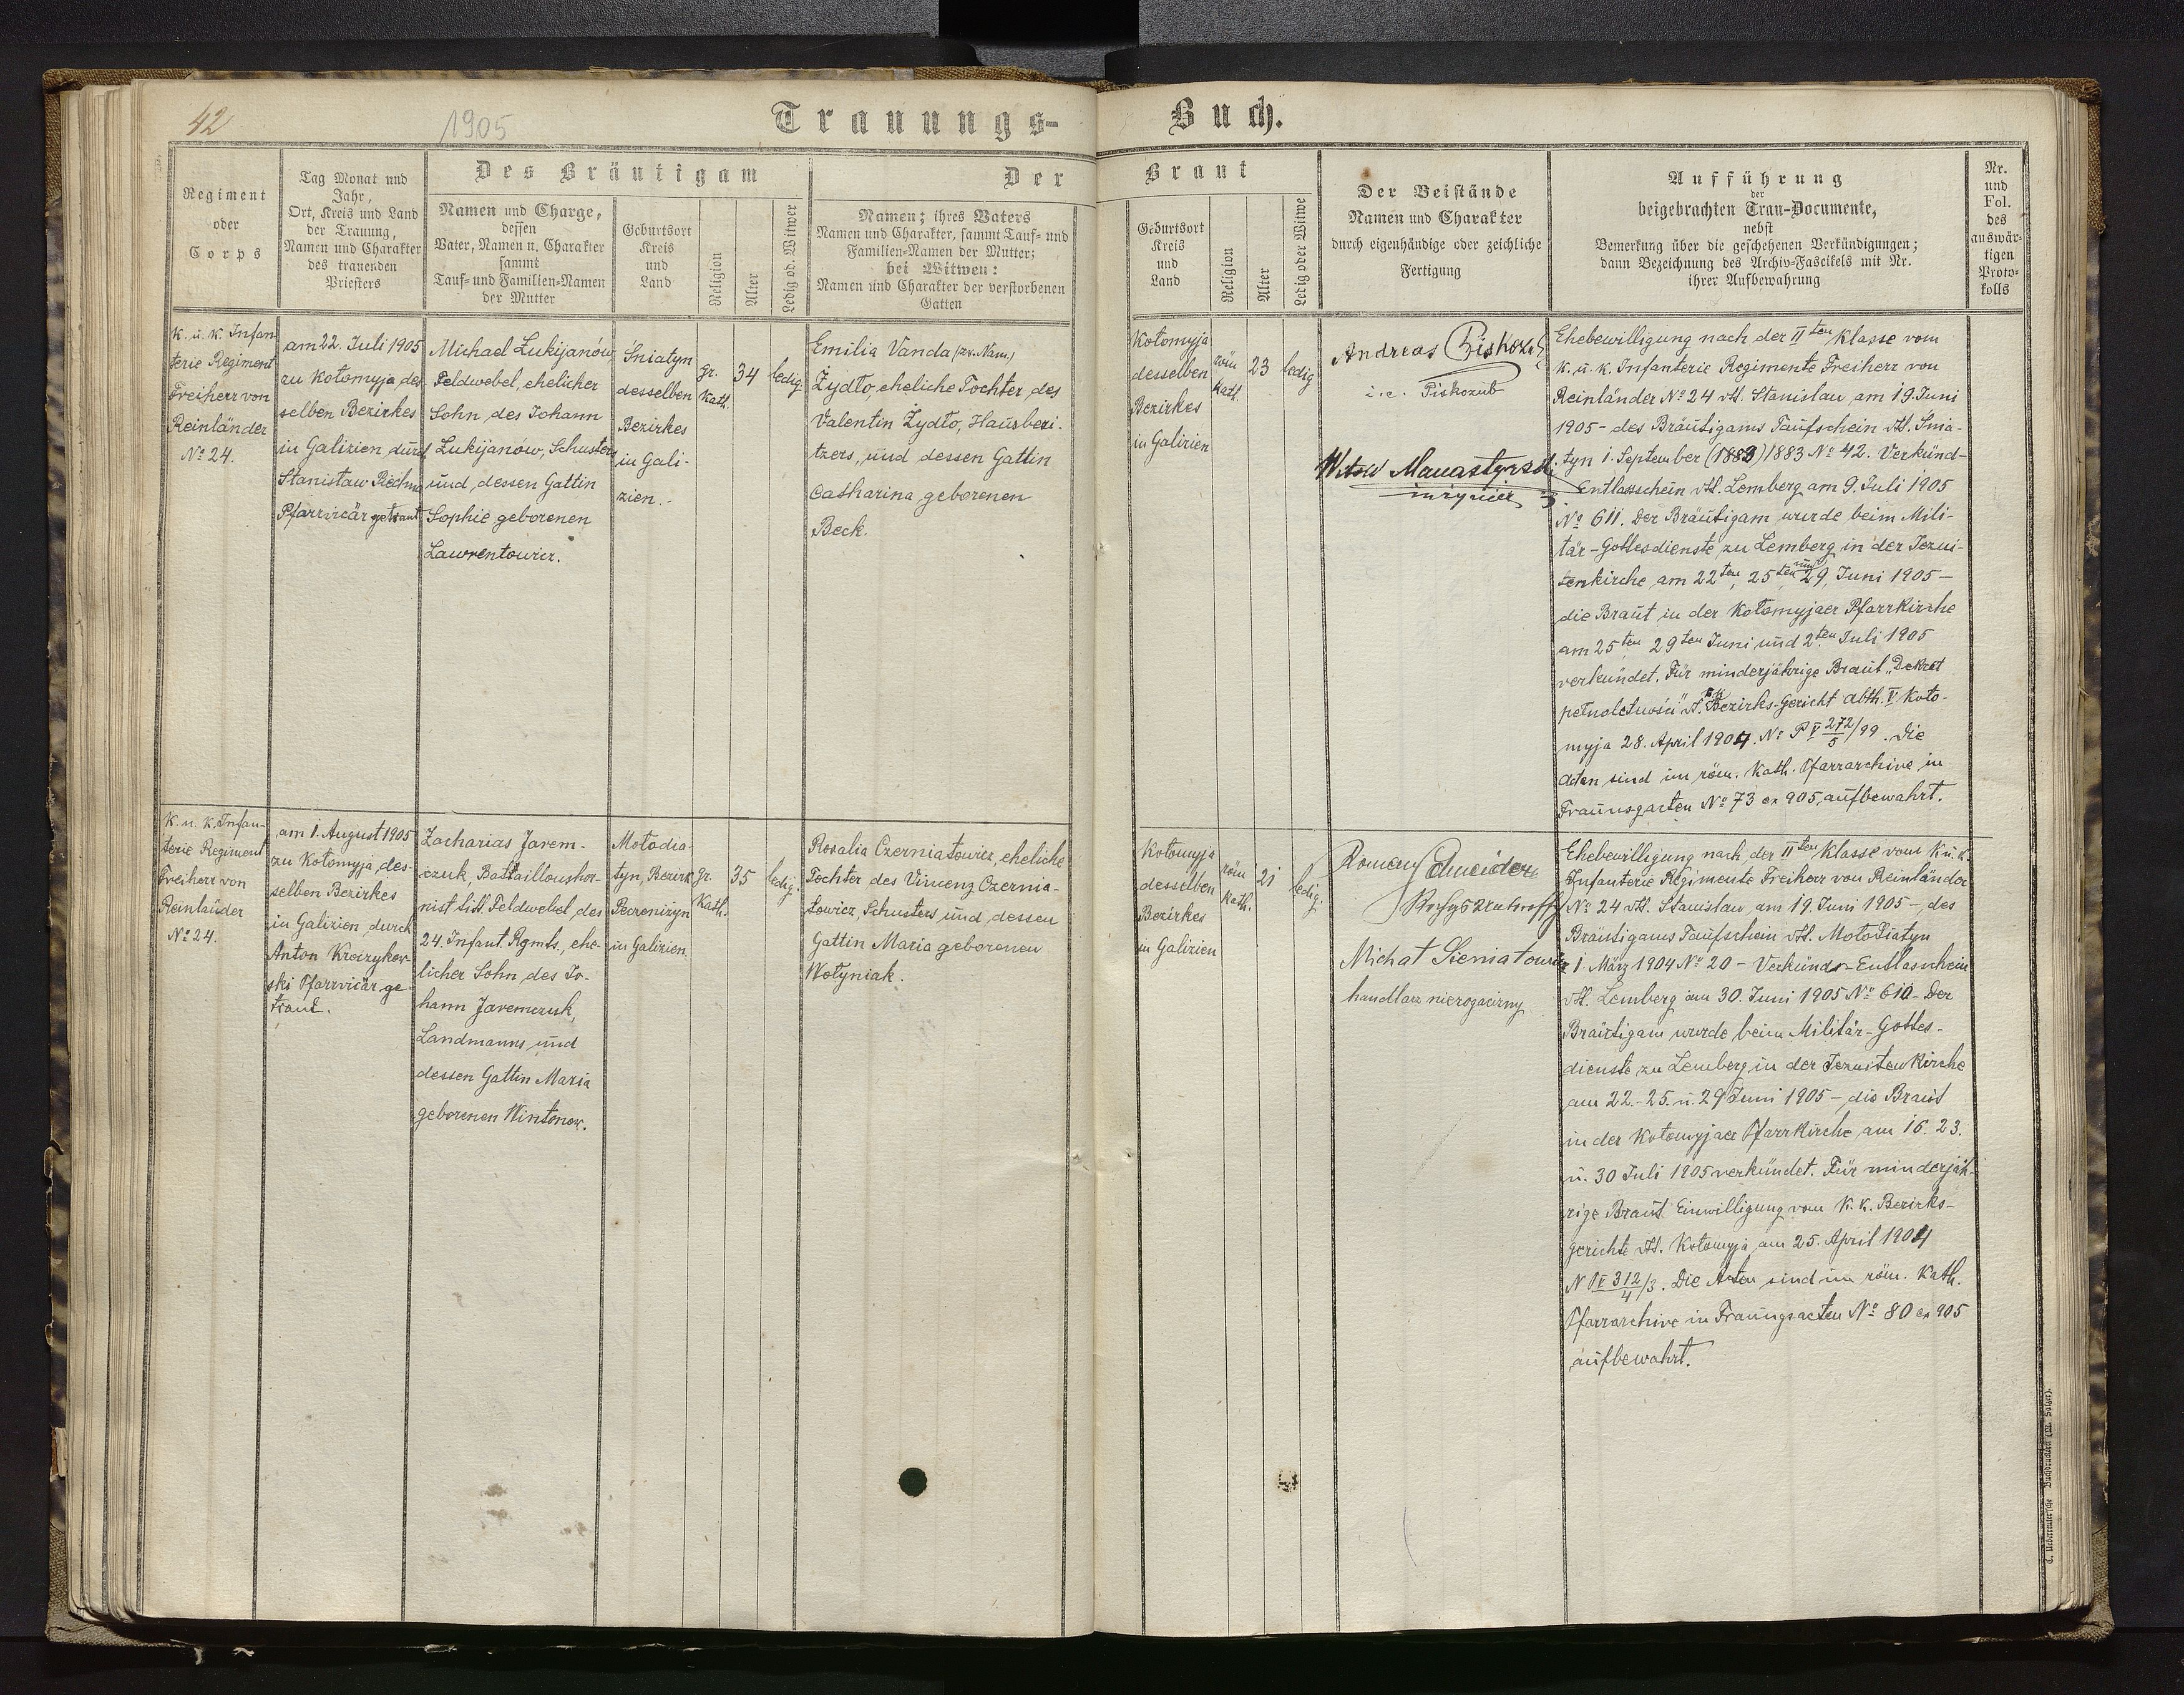 42
1905
Trauungs-
Buch.
Regiment
oder
Corps
Tag Monat und
Jahr,
Ort, Kreis und Land
der Trauung,
Namen und Charakter
des trauenden
Priesters
Des Bräutigam
Namen und Charge,
dessen
Vater, Namen u. Charakter
sammt
Tauf- und Familien-Namen
der Mutter
Geburtsort
Kreis
und
Land
Religion
Alter
Ledig od. Witwer
Der
Namen; ihres Vaters
Namen und Charakter, sammt Tauf- und
Familien-Namen der Mutter;
bei Witwen:
Namen und Charakter der verstorbenen
Gatten
Braut
Geburtsort
Kreis
und
Land
Religion
Alter
Ledig oder Witwe
Der Beistände
Namen und Charakter
durch eigenhändige oder zeichliche
Fertigung
Aufführung
der
beigebrachten Trau-Documente,
nebst
Bemerkung über die geschehenen Verkündigungen;
dann Bezeichnung des Archiv-Fascikels mit Nr.
ihrer Aufbewahrung
Nr.
und
Fol.
des
auswär-
tigen
Proto-
kolls
K. u. K. Infan-
terie Regiment
Freiherr von
Reinländer
No 24.
am 22. Juli 1905
zu Kołomyja des-
selben Bezirkes
in Galizien durch
Stanisław
Pfarrvicär getraut
Michael Lukijanów
Feldwebel, ehelicher
Sohn des Johann
Lukijanów, Schusters
und dessen Gattin
Sophie geborenen
Lawrentowicz.
Sniatyn
desselben
Bezirkes
in Gali-
zien.
gr.
Kath.
34
ledig.
Emilia Vanda (zw. Nam.)
Żydło, eheliche Tochter des
Valentin Żydło, Hausbesi-
tzers, und dessen Gattin
Catharina geborenen
Beck.
Kołomyja
desselben
Bezirkes
in Galizien
röm
Kath.
23
ledig
Andreas Piskozub
i.e. Piskozub
Witold
Ehebewilligung nach der IIten Klasse vom
K. u. K. Infanterie Regimente Freiherr von
Reinländer No 24 dd. Stanislau am 19. Juni
1905 - des Bräutigams Taufschein dd. Snia-
tyn 1. September (1883) 1883 No 42. Verkünd-
Entlasschein dd. Lemberg am 9. Juli 1905
No 611. Der Bräutigam wurde beim Mili-
tär-Gottesdienste zu Lemberg in der Jezui-
tenkirche am 22ten, 25ten und 29, Juni 1905 -
die Braut in der Kołomyjaer Pfarrkirche
am 25ten 29ten Juni und 2ten Juli 1905
verkündet. Für minderjährige Braut „Dekret
pełnoletności" Bezirks-Gericht Abth. V Koło-
myja 28. April 1904. No P V 272/5/99. Die
Acten sind im röm. Kath. Pfarrarchive in
Trauungsacten No 73 ex 905, aufbewahrt.
K. u. K. Infan-
terie Regiment
Freiherr von
Reinländer
No 24.
am 1. August 1905
zu Kołomyja des-
selben Bezirkes
in Galizien durch
Anton Kraczykow-
ski Pfarrvicär ge-
traut.
Zacharias Jarem-
czuk, Bataillonshor-
nist tit. Feldwebel, des
24. Infant. Rgmts., ehe-
licher Sohn des Jo-
hann Jaremczuk,
Landmanns und
dessen Gattin Maria
geborenen Wintonow.
Mołodia-
tyn, Bezirk
Peczeniżyn
in Galizien.
gr.
Kath.
35
ledig.
Rosalia Czerniatowicz, eheliche
Tochter des Vincenz Czernia-
towicz, Schusters und dessen
Gattin Maria geborenen
Wołyniak.
Kołomyja
desselben
Bezirkes
in Galizien
röm
Kath.
21
ledig.
Roman
Michał Sieniatowicz
handlarz nierogacizny
Ehebewilligung nach der IIten Klasse vom K. u. K.
Infanterie Regimente Freiherr von Reinländer
No 24 dd. Stanislau am 19. Juni 1905 -, des
Bräutigams Taufschein dd. Mołodiatyn
1. März 1904 No 20 - Verkünds-Entlasschein
dd. Lemberg am 30. Juni 1905 No 610 - Der
Bräutigam wurde beim Militär-Gottes-
dienste zu Lemberg in der Jezuiten Kirche
am 22. - 25. u. 29 Juni 1905 - die Braut
in der Kołomyjaer Pfarrkirche am 16. 23.
u. 30 Juli 1905 verkündet. Für minderjäh-
rige Braut Einwilligung vom K. K. Bezirks-
gerichte dd. Kołomyja am 25. April 1904
N P V 312/4/3. Die Acten sind im röm. Kath.
Pfarrarchive in Trauungsacten No 80 ex 905
aufbewahrt.